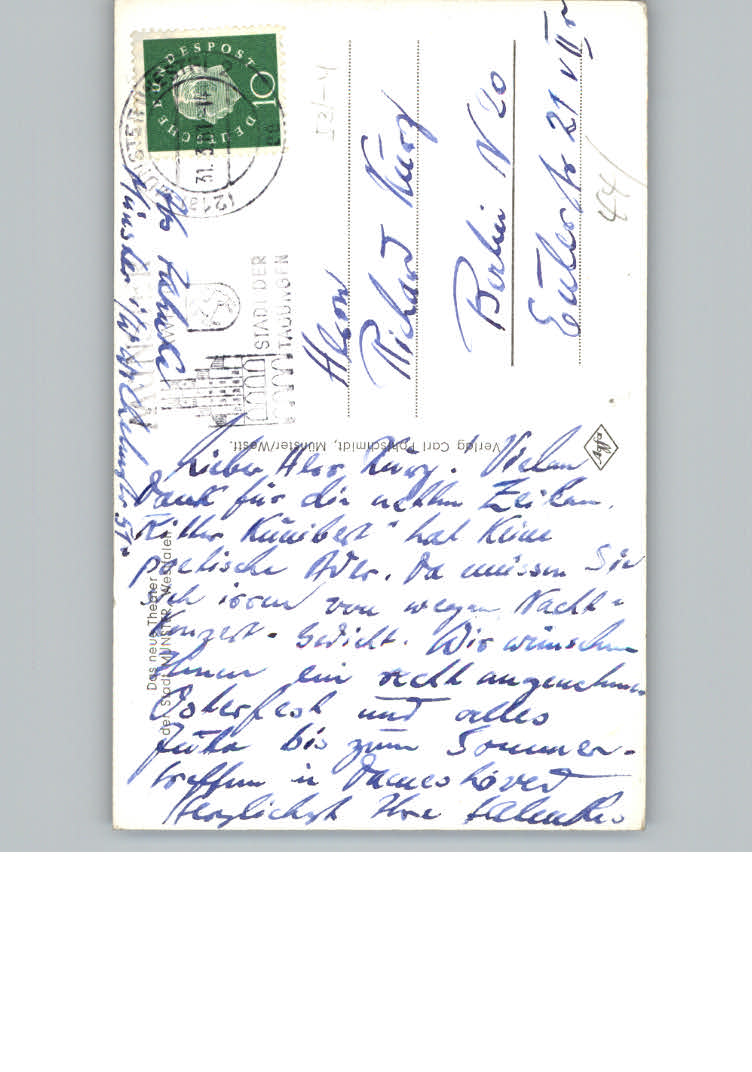 DEUTSCHE BUNDESPOST
10
31.3.61
(21a)
STADT DER
TAGUNGEN
Münster i/W
Herrn
Richard Kurz
Berlin N 20
Eulerstr 21 VII r
44/
Verlag Carl Pohlschmidt, Münster/Westf.
Agfa
Das neue Theater
der Stadt MÜNSTER, Westfalen
Lieber Herr Kurz! Vielen
Dank für die netten Zeilen.
Ritter Kunibert" hat keine
poetische Ader. Da müssen Sie
sich irren von wegen Nacht-
konzert-Gedicht. Wir wünschen
Ihnen ein recht angenehmes
Osterfest und alles
Gute bis zum Sommer-
treffen in Dameshöved
Herzlichst Ihre